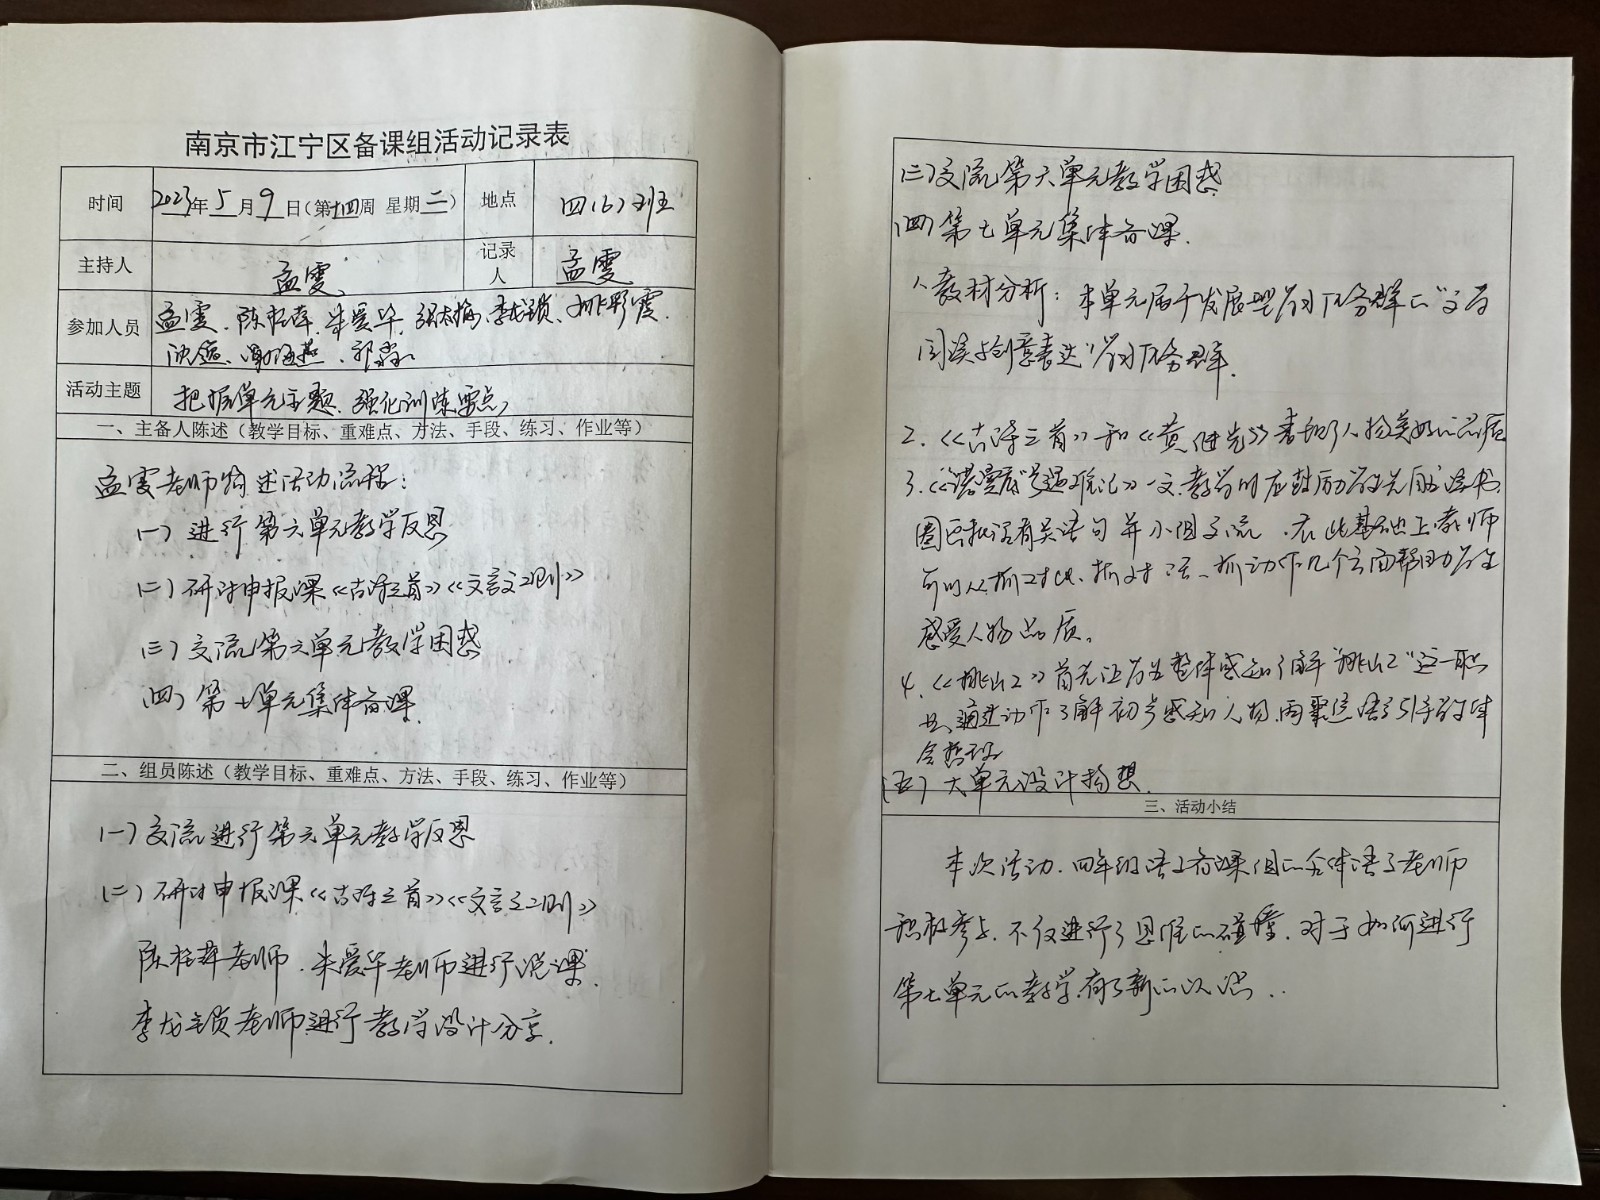 南京市江宁区备课组活动记录表
时间 2023年5月9日(第十四周 星期二) 地点 四(6)班
主持人 孟雯 记录人 孟雯
参加人员 孟雯、陈 朱爱华、李龙锁、姚彩霞、
沈 谢海燕、郭
活动主题 把握单元主题、强化训练要点
一、主备人陈述（教学目标、重难点、方法、手段、练习、作业等）
孟雯老师 述活动流程：
(一)进行第六单元教学反思
(二)研讨申报课《古诗三首》《文言文二则》
(三)交流第六单元教学困惑
(四)第七单元集体备课.
二、组员陈述（教学目标、重难点、方法、手段、练习、作业等）
(一)交流进行第六单元教学反思
(二)研讨申报课《古诗三首》《文言文二则》
陈 老师、朱爱华老师进行说课.
李龙锁老师进行教学设计分享.
(三)交流第六单元教学困惑
(四)第七单元集体备课.
1、教材分析：本单元属于发展型学习任务群的"文学
阅读与创意表达"学习任务群.
2.《古诗三首》和《黄继光》表现了人物美好的品质
3.《"诺曼底"号遇难记》一文,教学时应鼓励学生先自主读书,
圈画批注有关语句并小组交流.在此基础上教师
可以从抓对比、抓对话、抓动作几个方面帮助学生
感受人物品质。
4.《挑山工》首先让学生整体感知了解"挑山工"这一职
业,通过动作了解初步感知人物,再聚焦语言引导学生体
会哲理
(五)大单元设计构想.
三、活动小结
本次活动.四年级语文备课组的全体语文老师
积极参与,不仅进行了思维的碰撞,对于如何进行
第七单元的教学,有了新的认识..